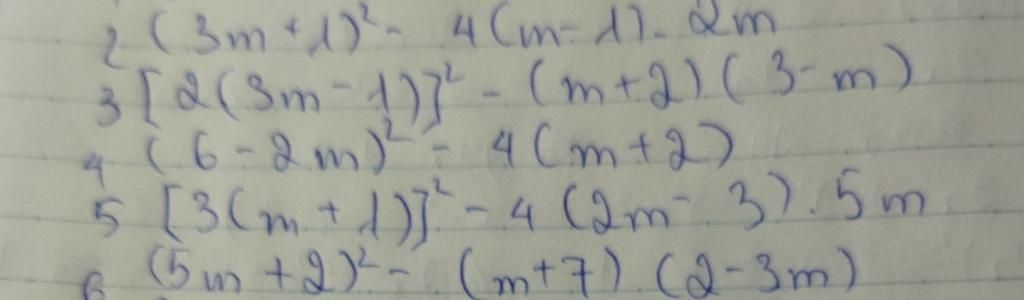 2 (3m + 1)² - 4(m - 1). 2m
3 [2(3m - 1)]² - (m + 2)(3 - m)
4 (6 - 2m)² - 4(m + 2)
5 [3(m + 1)]² - 4(2m - 3). 5m
6 (5m + 2)² - (m + 7)(2 - 3m)